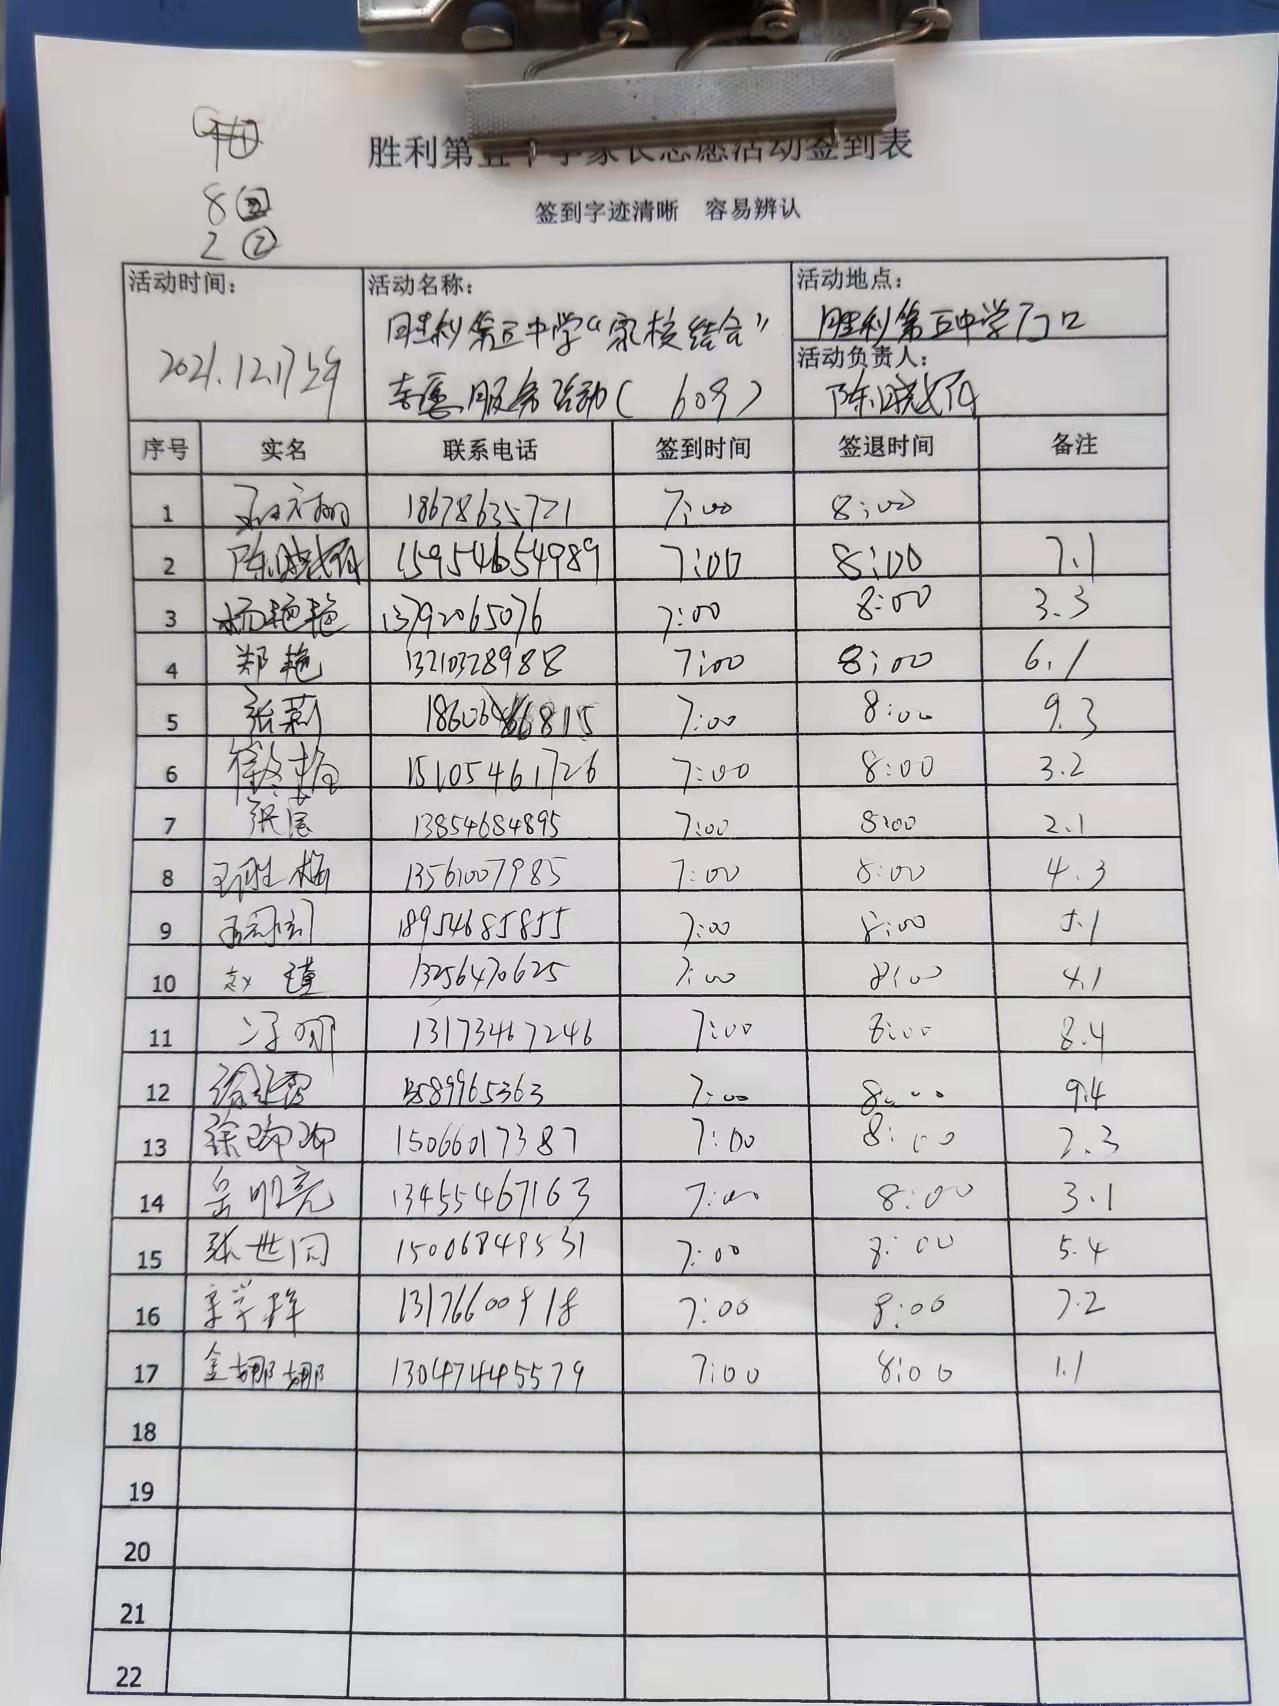 8 ③
2 ②
胜利第五中学家长志愿活动签到表
签到字迹清晰 容易辨认
活动时间: 2021.12.17上午
活动名称: 胜利第五中学“家校结合”
志愿服务活动( 609)
活动地点: 胜利第五中学门口
活动负责人: 陈晓
序号 实名 联系电话 签到时间 签退时间 备注
1 18678635721 7:00 8:00
2 陈晓 15954654989 7:00 8:00 7.1
3 杨艳艳 13792065076 7:00 8:00 3.3
4 郑艳 13210328988 7:00 8:00 6.1
5 张莉 7:00 8:00 9.3
6 徐冬梅 15105461726 7:00 8:00 3.2
7 张蕾 13854684895 7:00 8:00 2.1
8 王胜梅 13561007985 7:00 8:00 4.3
9 18954685855 7:00 8:00 5.1
10 赵瑾 13256470625 7:00 8:00 4.1
11 13173467246 7:00 8:00 8.4
12 13589965363 7:00 8:00 9.4
13 徐珊珊 15066017387 7:00 8:00 2.3
14 岳明亮 13455467163 7:00 8:00 3.1
15 张世同 15006849531 7:00 8:00 5.4
16 7:00 8:00 7.2
17 金娜娜 13047445579 7:00 8:00 1.1
18
19
20
21
22